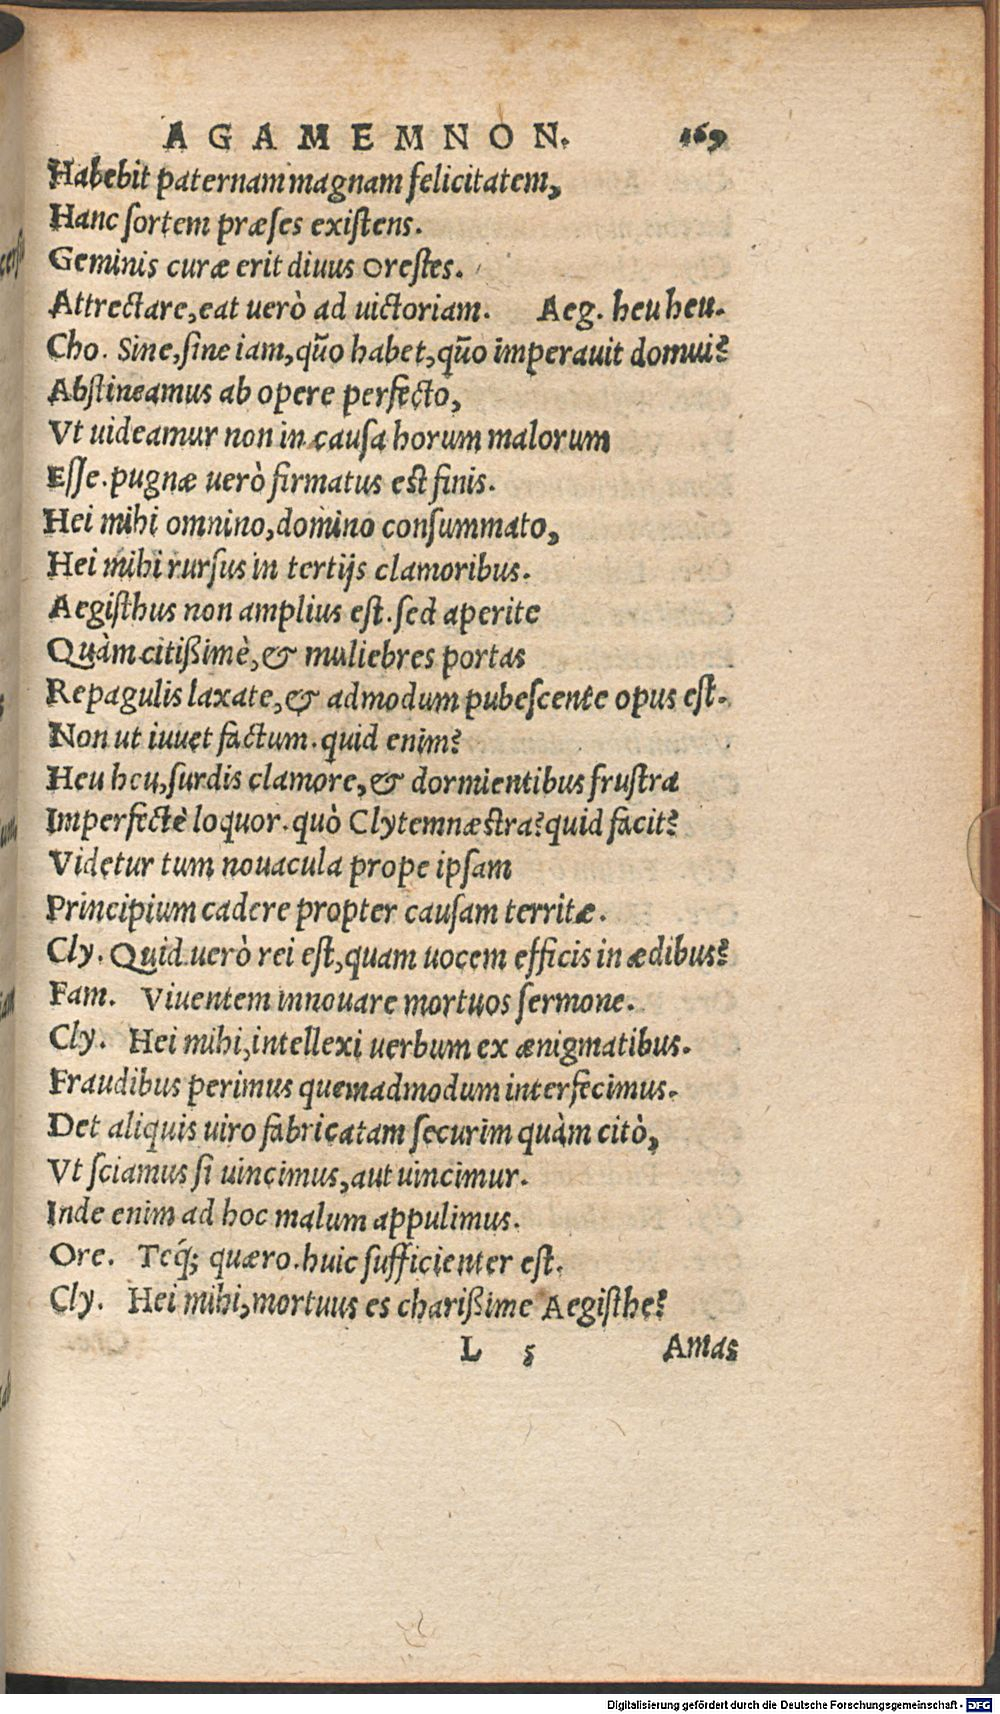 AGAMEMNON. 169
Habebit paternam magnam felicitatem,
Hanc sortem præses existens.
Geminis curæ erit diuus Orestes.
Attrectare, eat uerò ad uictoriam. Aeg. heu heu.
Cho. Sine, sine iam, qūo habet, qūo imperauit domui?
Abstineamus ab opere perfecto,
Vt uideamur non in causa horum malorum
Esse. pugnæ uerò firmatus est finis.
Hei mihi omnino, domino consummato,
Hei mihi rursus in tertijs clamoribus.
Aegisthus non amplius est. sed aperite
Quàm citißimè, & muliebres portas
Repagulis laxate, & admodum pubescente opus est.
Non ut iuuet factum. quid enim?
Heu heu, surdis clamore, & dormientibus frustra
Imperfectè loquor. quò Clytemnæstra? quid facit?
Videtur tum nouacula prope ipsam
Principium cadere propter causam territæ.
Cly. Quid uerò rei est, quam uocem efficis in ædibus?
Fam. Viuentem innouare mortuos sermone.
Cly. Hei mihi, intellexi uerbum ex ænigmatibus.
Fraudibus perimus quemadmodum interfecimus.
Det aliquis uiro fabricatam securim quàm citò,
Vt sciamus si uincimus, aut uincimur.
Inde enim ad hoc malum appulimus.
Ore. Teq́; quæro. huic sufficienter est.
Cly. Hei mihi, mortuus es charißime Aegisthe?
L 5 Amas
Digitalisierung gefördert durch die Deutsche Forschungsgemeinschaft - DFG